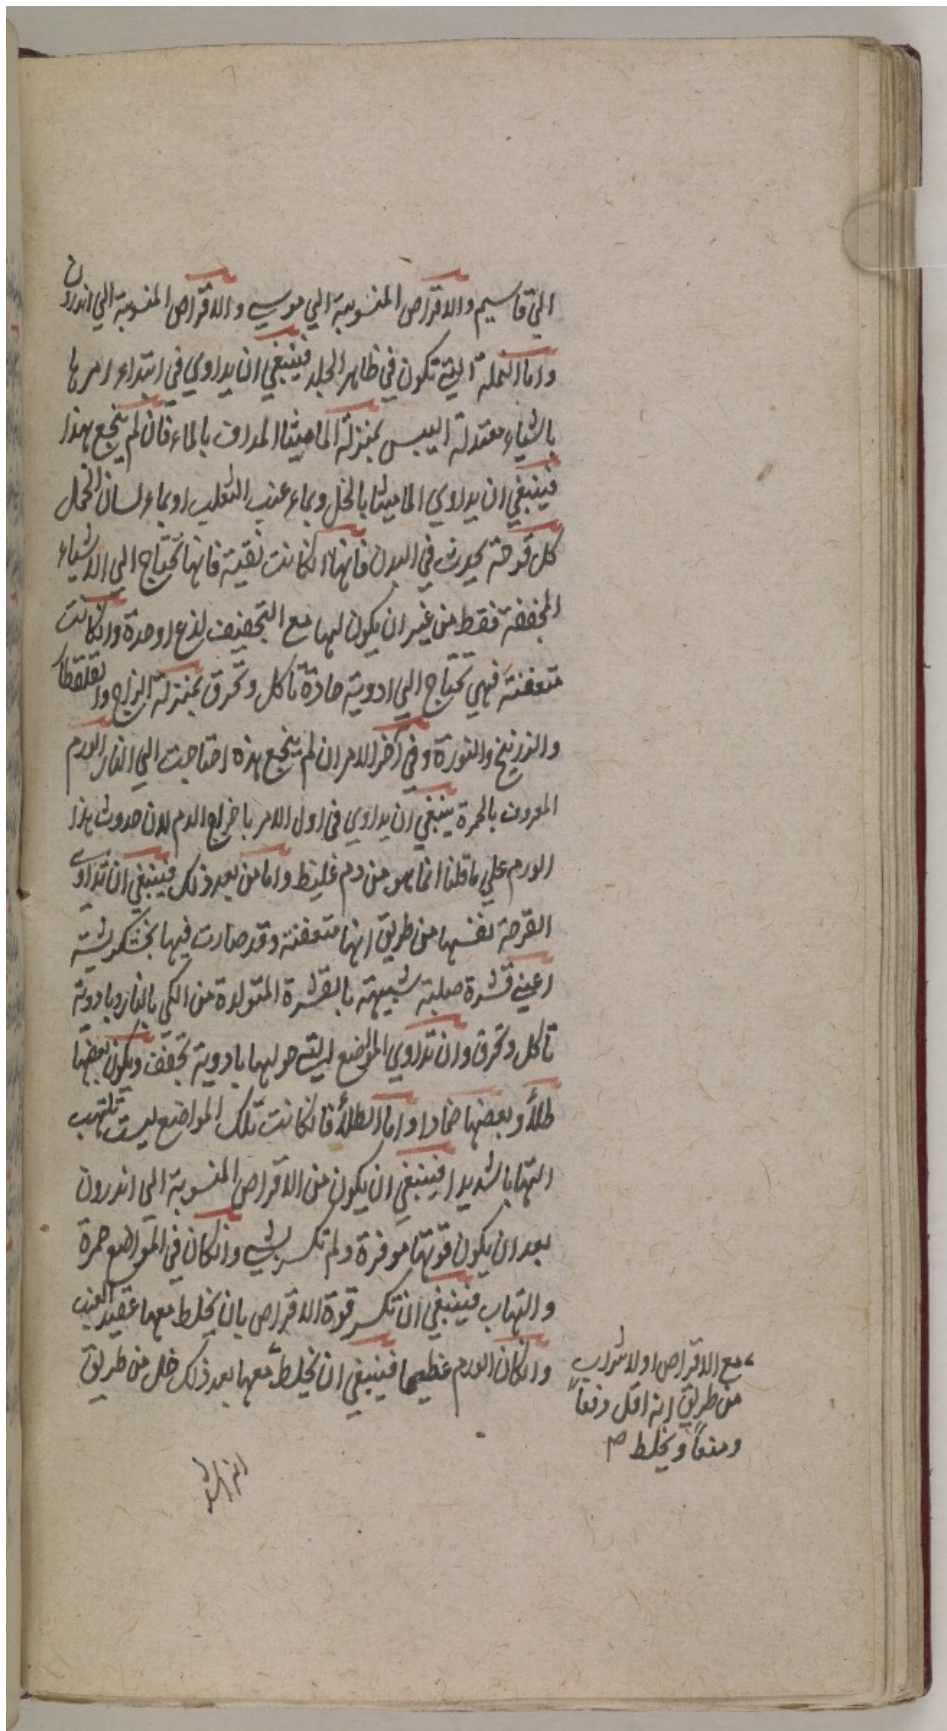 الى قاسيم والاقراص المنسوبة الي موسي والاقراص المنسوبة الي اندرون
واما النملة التي تكون في ظاهر الجلد فينبغي ان يداوي في ابتداء امرها
باشياء معتدلة اليبس بمنزلة الماميثا المداف بالماء فان لم ينجع هذا
فينبغي ان يداوي الماميثا بالخل وبماء عنب الثعلب او بماء لسان الحمل
كل قرحة يحدث في البدن فانها انكانت نقية فانها تحتاج الي الاشياء
المجففة فقط من غير ان يكون لها مع التجفيف لذع او حدة وانكانت
متعفنة فهي تحتاج الي ادوية حادة تاكل وتحرق بمنزلة الزاج والقلقطار
والزرنيخ والنورة وفي آخر الامر ان لم ينجع هذه احتاجت الي النار الورم
المعروف بالحمرة ينبغي ان يداوي في اول الامر باخراج الدم لان حدوث هذا
الورم علي ما قلنا انما هو من دم غليظ واما من بعد ذلك فينبغي ان تداوي
القرحة نفسها من طريق انها متعفنة وقد صارت فيها خشكريشة
اعني قشرة صلبة شبيهة بالقشرة المتولدة من الكي بالنار وبادوية
تاكل وتحرق وان تداوي المواضع التي حولها بادوية تجفف ويكون بعضها
طلأ وبعضها ضمادا واما الطلأ فانكانت تلك المواضع ليست تلتهب
التهابا شديدا فينبغي ان يكون من الاقراص المنسوبة الي اندرون
بعد ان يكون قوتها موفرة ولم تكسر بشي وانكان في المواضع حمرة
والتهاب فينبغي ان تكسر قوة الاقراص بان يخلط معها عقيد العنب
وانكان الورم عظيما فينبغي ان يخلط معها بعد ذلك خل من طريق
مع الاقراص اولا شراب
من طريق انه اقل دفعاً
ومنعاً ويخلط صح